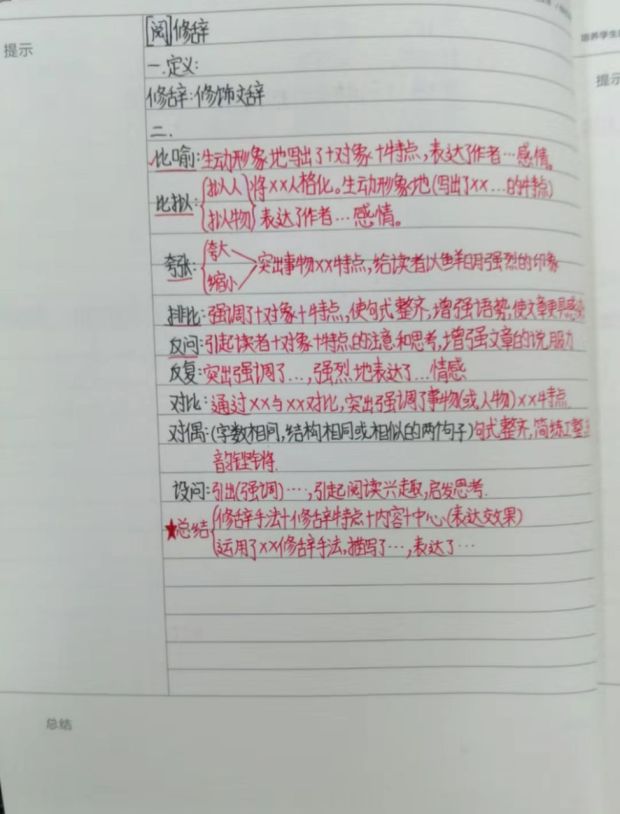 培养学生
提示
提示
[阅]修辞
一.定义:
修辞:修饰文辞
二.
比喻:生动形象地写出了+对象+特点,表达了作者…感情。
比拟:{拟人}将××人格化。生动形象地(写出了××…的特点)
{拟物}表达了作者…感情。
夸张:{夸大
缩小 突出事物××特点,给读者以鲜明强烈的印象
排比:强调了+对象+特点,使句式整齐,增强语势,使文章更具
反问:引起读者+对象+特点的注意和思考,增强文章的说服力
反复:突出强调了…,强烈地表达了…情感
对比:通过××与××对比,突出强调了事物(或人物)××特点
对偶:(字数相同,结构相同或相似的两个句子)句式整齐,简练工整
音韵铿锵.
设问:引出(强调)…,引起阅读兴趣,启发思考.
★总结{修辞手法+修辞特点+内容+中心(表达效果)
运用了××修辞手法,描写了…,表达了…
总结